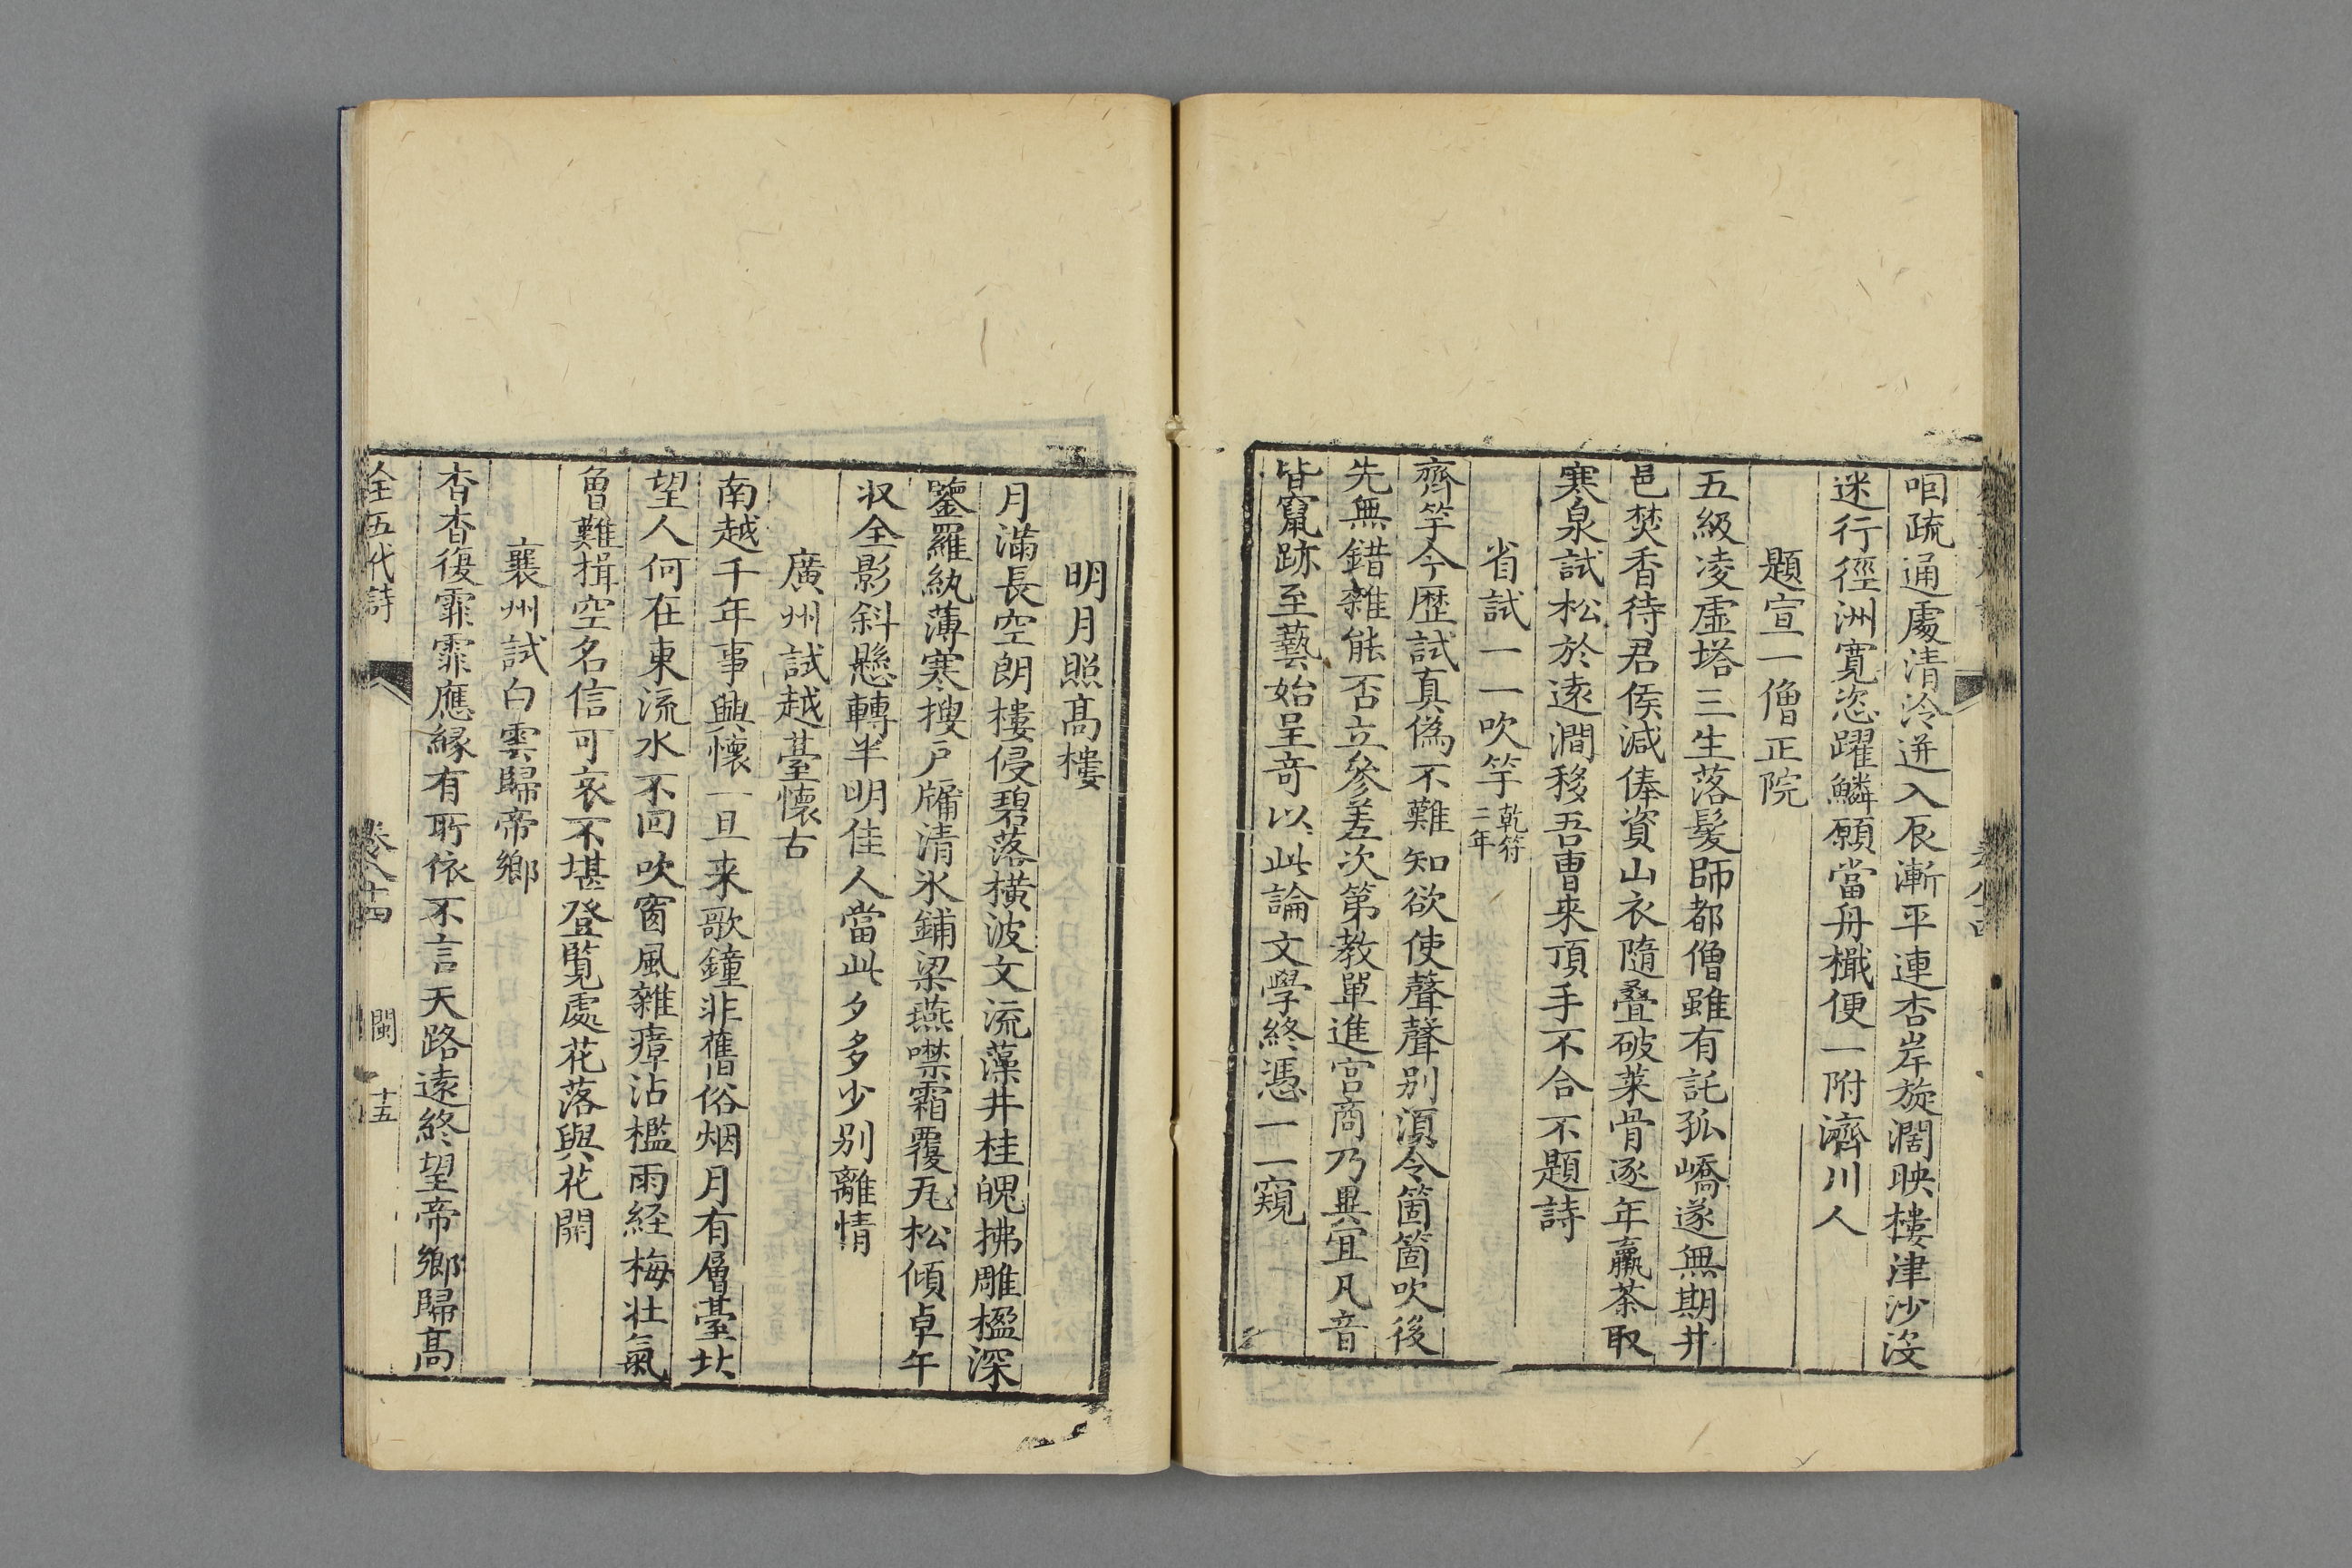 咱疏通處清泠迸入辰漸平連杏岸旋濶映樓津沙没
迷行徑洲寛恣躍鱗願當舟檝便一附濟川人
題宣一僧正院
五級凌虛塔三生落髪師都僧雖有託孤嶠遂無期井
邑焚香待君侯減俸資山衣隨疊破萊骨逐年羸茶取
寒泉試松於遠澗移吾曹来頂手不合不題詩
省試一一吹竽乾符二年
齊竽今歴試真僞不難知欲使聲聲别湏令箇箇吹後
先無錯雜能否立參差次第教單進宫商乃異宜凡音
皆竄跡至藝始呈奇以此論文學終憑一一窺
明月照髙樓
月滿長空朗樓侵碧落横波文流藻井桂魄拂雕楹深
鑒羅紈薄寒搜戸牖清氷鋪梁燕噤霜覆瓦松傾卓午
収全影斜懸轉半明佳人當此夕多少别離情
廣州試越臺懷古
南越千年事興懷一旦来歌鐘非舊俗烟月有層臺北
望人何在東流水不回吹窗風雜瘴沾檻雨経梅壮氣
曾難揖空名信可哀不堪登覧處花落與花開
襄州試白雲歸帝鄉
杳杳復霏霏應縁有所依不言天路遠終望帝鄉歸髙
全五代詩 卷八十四 閩 十五